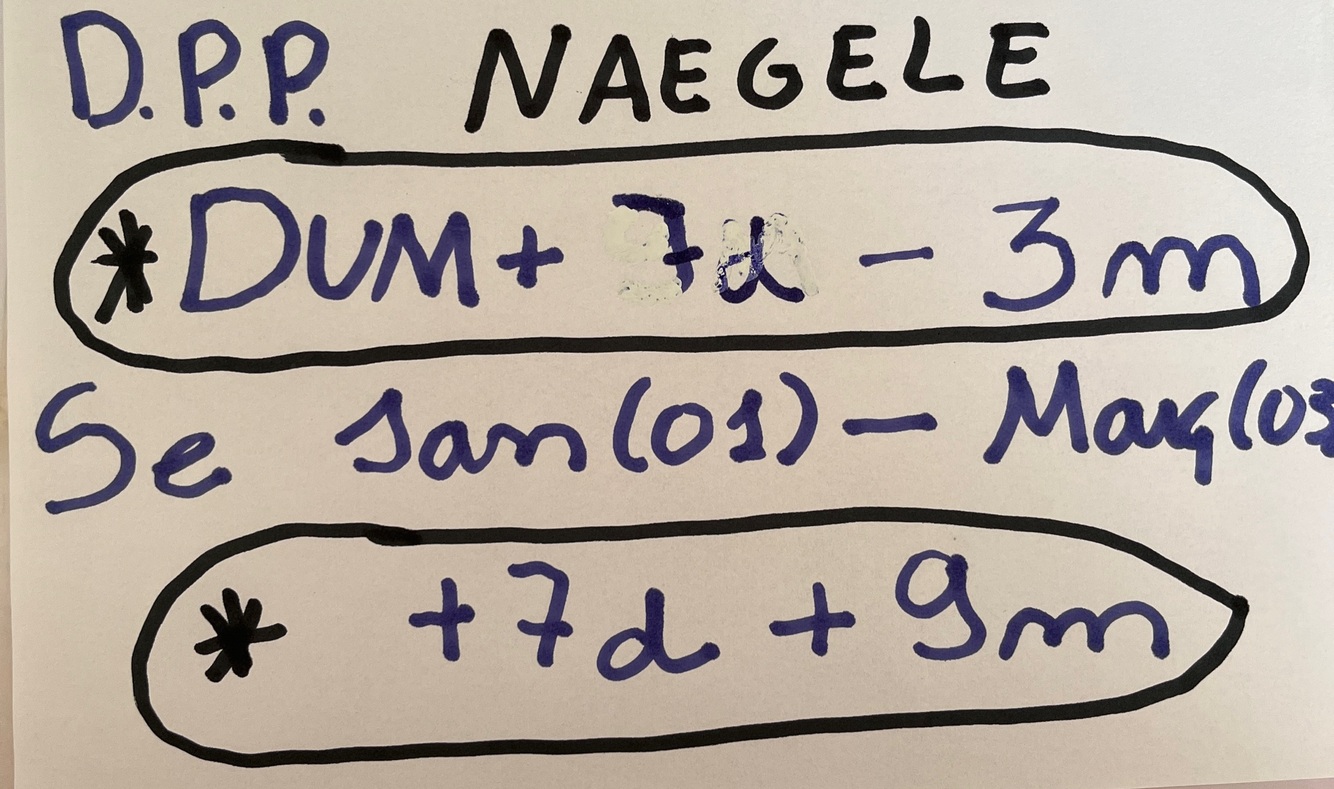 D.P.P. NAEGELE
* DUM + 7d - 3m
Se Jan (01) - Març (03
* +7d + 9m